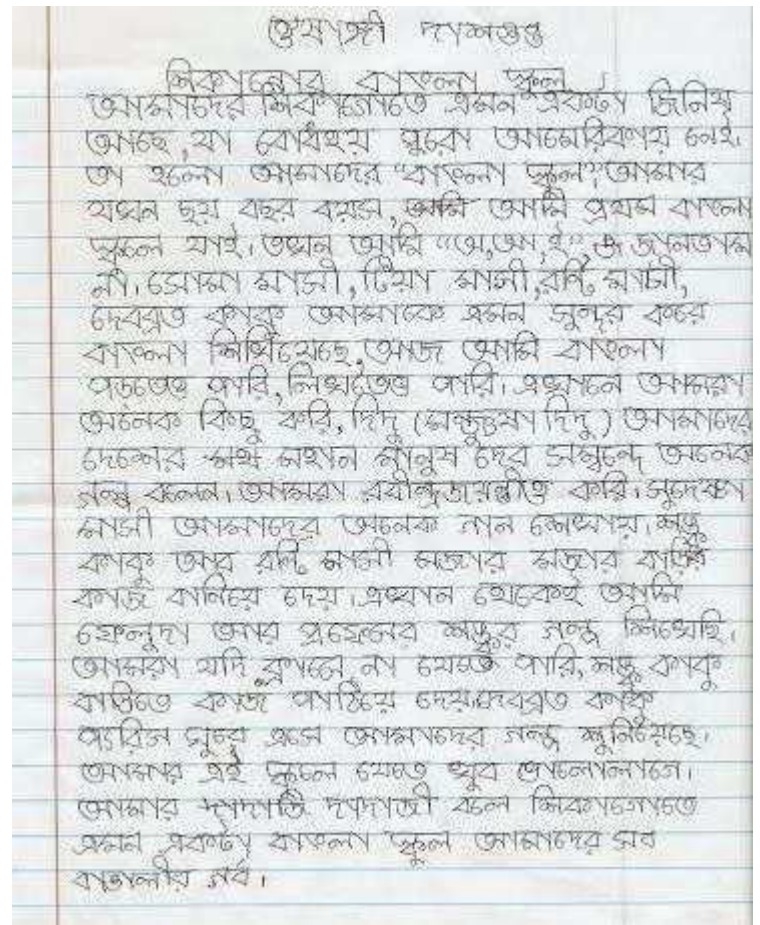 ঔষাঙ্গী দাশগুপ্ত
শিকাগোর বাঙলা স্কুল
আমাদের শিকাগোতে এমন একটা জিনিষ
আছে, যা বোধহয় পুরো আমেরিকায় নেই।
তা হলো আমাদের "বাঙলা স্কুল"। আমার
যখন ছয় বছর বয়স, আমি প্রথম বাঙলা
স্কুলে যাই। তখন আমি "অ, আ, ই" ও জানতাম
না। সোমা মাসী, টিয়া মাসী, রন্টি মাসী,
দেবব্রত কাকু আমাকে এমন সুন্দর করে
বাঙলা শিখিয়েছে, আজ আমি বাঙলা
পড়তেও পারি, লিখতেও পারি। এখানে আমরা
অনেক কিছু করি, দিদু (দিদু) আমাদের
দেশের মহান মানুষ দের সম্বন্দে অনেক
গল্প বলেন। আমরা রবীন্দ্রজয়ন্তীও করি। সুদেষ্ণা
মাসী আমাদের অনেক গান শেখায়। শঙ্কু
কাকু আর রন্টি মাসী মজার মজার বাড়ির
কাজ বানিয়ে দেয়। এখান থেকেই আমি
ফেলুদা আর প্রফেসর শঙ্কুর গল্প শিখেছি।
আমরা যদি ক্লাসে না যেতে পারি, শঙ্কু কাকু
বাড়িতে কাজ পাঠিয়ে দেয়। দেবব্রত কাকু
প্যারিস ঘুরে এসে আমাদের গল্প শুনিয়েছে।
আমার এই স্কুলে যেতে খুব ভালোলাগে।
আমার দাদাজী বলে শিকাগোতে
এমন একটা বাঙলা স্কুল আমাদের সব
বাঙালীর গর্ব।